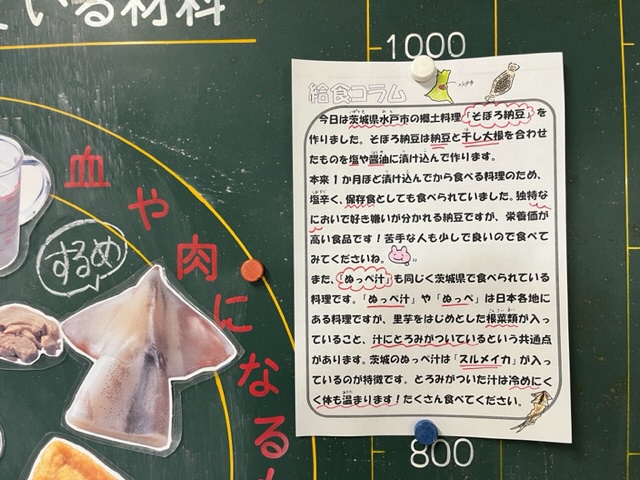 いる材料
1000
血や肉になる
するめ
給食コラム
今日は茨城県水戸市の郷土料理「そぼろ納豆」を
作りました。そぼろ納豆は納豆と干し大根を合わせ
たものを塩や醤油に漬け込んで作ります。
本来1か月ほど漬け込んでから食べる料理のため、
塩辛く、保存食としても食べられていました。独特な
においで好き嫌いが分かれる納豆ですが、栄養価が
高い食品です！苦手な人も少しで良いので食べて
みてくださいね。
また、「ぬっぺ汁」も同じく茨城県で食べられている
料理です。「ぬっぺ汁」や「ぬっぺ」は日本各地に
ある料理ですが、里芋をはじめとした根菜類が入っ
ていること、汁にとろみがついているという共通点
があります。茨城のぬっぺ汁は「スルメイカ」が入っ
ているのが特徴です。とろみがついた汁は冷めにく
く体も温まります！たくさん食べてください。
800